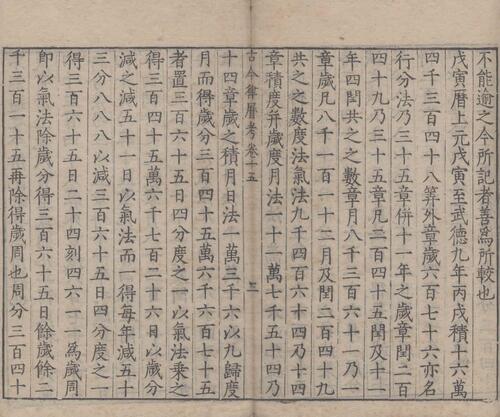 不能逾之今所記者善爲所較也
戊寅曆上元戊寅至武德九年丙戌積十六萬
四千三百四十八算外章歲六百七十六亦名
行分法乃三十五章併十一年之歲章閏二百
四十九乃三十五章凡二百四十五閏及十一
年四閏共之之數章月八千三百六十一乃一
章歲凡八千一百一十二月及閏二百四十九
共之之數度法氣法九千四百六十四乃十四
章積度并歲度月法一十二萬七千五十四乃
古今律曆考卷十五 三
十四章歲之積月日法一萬三千六以九歸度
月而得歲分三百四十五萬六千六百七十五
者置三百六十五日四分度之一以氣法乘之
得三百四十五萬六千七百二十六以歲分
減之減五十一日以氣法而一得每年減五十
三分八八八以減三百六十五日四分度之一
得三百六十五日二十四刻四六一一爲歲周
即以氣法除歲分得三百六十五日餘歲餘二
千三百一十五再除得歲周也周分三百四十